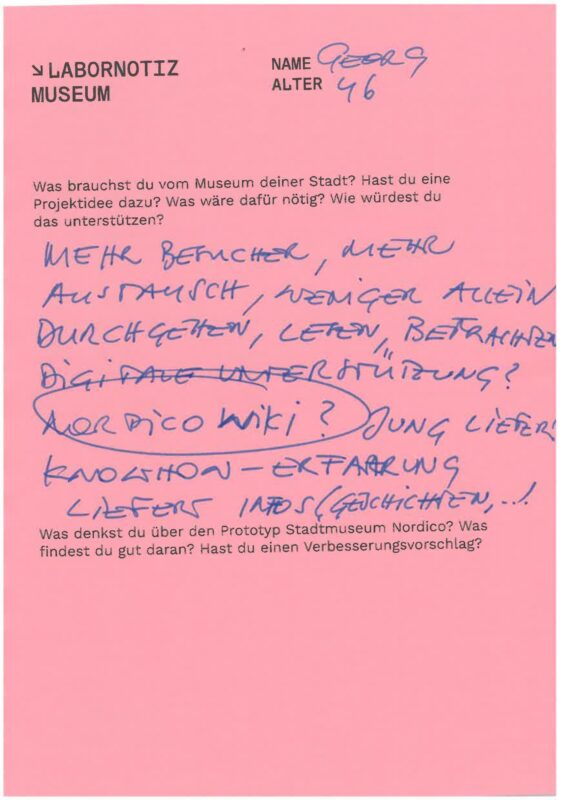 ↘ LABORNOTIZ
MUSEUM
NAME GEORG
ALTER 46
Was brauchst du vom Museum deiner Stadt? Hast du eine
Projektidee dazu? Was wäre dafür nötig? Wie würdest du
das unterstützen?
MEHR BESUCHER, MEHR
AUSTAUSCH, WENIGER ALLEIN
DURCHGEHEN, LESEN, BETRACHTEN
DIGITALE UNTERSTÜTZUNG?
NORDICO WIKI? JUNG LIEFERT
KNOWHOW – ERFAHRUNG
LIEFERT INFOS (GESCHICHTEN, ...!
Was denkst du über den Prototyp Stadtmuseum Nordico? Was
findest du gut daran? Hast du einen Verbesserungsvorschlag?